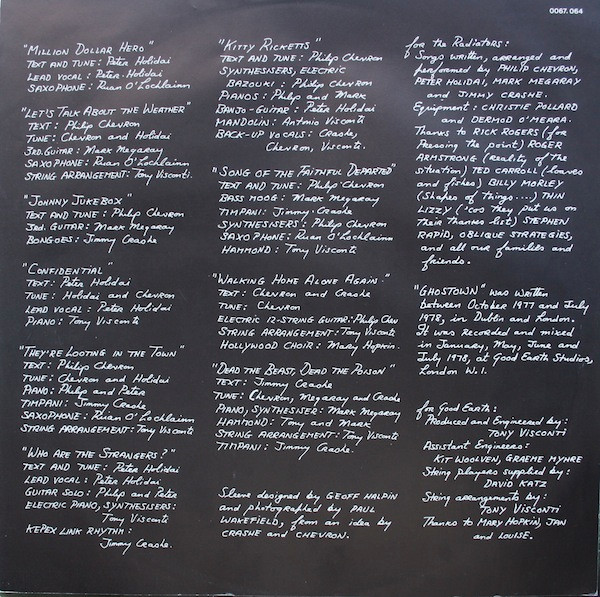 0067.064
"MILLION DOLLAR HERO"
TEXT AND TUNE: Peter Holidai
LEAD VOCAL: Peter Holidai
SAXOPHONE: Ruan O'Lochlainn
"LET'S TALK ABOUT THE WEATHER"
TEXT: Philip Chevron
TUNE: Chevron and Holidai
3RD. GUITAR: Mark Megaray
SAXOPHONE: Ruan O'Lochlainn
STRING ARRANGEMENT: Tony Visconti.
"JOHNNY JUKEBOX"
TEXT AND TUNE: Philip Chevron
3RD. GUITAR: Mark Megaray
BONGOES: Jimmy Crashe
"CONFIDENTIAL"
TEXT: Peter Holidai
TUNE: Holidai and Chevron
LEAD VOCAL: Peter Holidai
PIANO: Tony Visconti
"THEY'RE LOOTING IN THE TOWN"
TEXT: Philip Chevron
TUNE: Chevron and Holidai
PIANO: Philip and Peter
TIMPANI: Jimmy Crashe
SAXOPHONE: Ruan O'Lochlainn
STRING ARRANGEMENT: Tony Visconti
"WHO ARE THE STRANGERS?"
TEXT AND TUNE: Peter Holidai
LEAD VOCAL: Peter Holidai
GUITAR SOLO: Philip and Peter
ELECTRIC PIANO, SYNTHESISERS:
Tony Visconti
KEPEX LINK RHYTHM:
Jimmy Crashe.
"KITTY RICKETTS"
TEXT AND TUNE: Philip Chevron
SYNTHESISERS, ELECTRIC
BAZOUKI: Philip Chevron
PIANOS: Philip and Mark
BANJO-GUITAR: Peter Holidai
MANDOLIN: Antonio Visconti
BACK-UP VOCALS: Crashe,
Chevron, Visconti.
"SONG OF THE FAITHFUL DEPARTED"
TEXT AND TUNE: Philip Chevron
BASS MOOG: Mark Megaray
TIMPANI: Jimmy Crashe
SYNTHESISERS: Philip Chevron
SAXOPHONE: Ruan O'Lochlainn
HAMMOND: Tony Visconti
"WALKING HOME ALONE AGAIN"
TEXT: Chevron and Crashe
TUNE: Chevron
ELECTRIC 12-STRING GUITAR: Philip Chevron
STRING ARRANGEMENT: Tony Visconti
HOLLYWOOD CHOIR: Mary Hopkin.
"DEAD THE BEAST, DEAD THE POISON"
TEXT: Jimmy Crashe
TUNE: Chevron, Megaray and Crashe
PIANO, SYNTHESISER: Mark Megaray
HAMMOND: Tony and Mark
STRING ARRANGEMENT: Tony Visconti
TIMPANI: Jimmy Crashe.
Sleeve designed by GEOFF HALPIN
and photographed by PAUL
WAKEFIELD, from an idea by
CRASHE and CHEVRON.
for the Radiators:
Songs written, arranged and
performed by PHILIP CHEVRON,
PETER HOLIDAI, MARK MEGARAY
and JIMMY CRASHE.
Equipment: CHRISTIE POLLARD
and DERMOD O'MEARA.
Thanks to RICK ROGERS (for
Pressing the point) ROGER
ARMSTRONG (reality of the
situation) TED CARROLL (loaves
and fishes) BILLY MORLEY
(Shapes of things....) THIN
LIZZY ('cos they put us on
their thanks list) STEPHEN
RAPID, OBLIQUE STRATEGIES,
and all our families and
friends.
"GHOSTOWN" was written
between October 1977 and July
1978, in Dublin and London.
It was recorded and mixed
in January, May, June and
July 1978, at Good Earth Studios,
London W.1.
for Good Earth:
Produced and Engineered by:
TONY VISCONTI
Assistant Engineers:
KIT WOOLVEN, GRAEME MYHRE
String players supplied by:
DAVID KATZ
String arrangements by:
TONY VISCONTI
Thanks to MARY HOPKIN, JAN
and LOUISE.